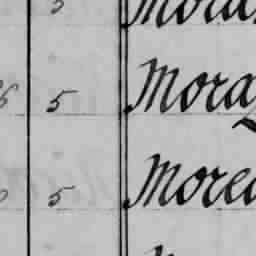 5 Mora
6 5 Mora
5 More